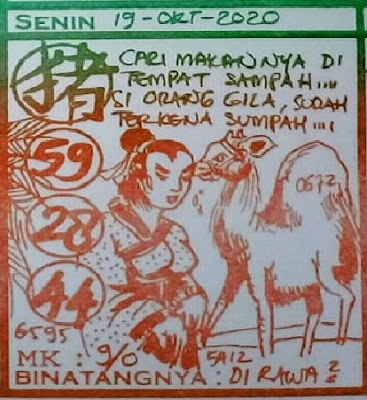 SENIN 19-OKT-2020
猪
CARI MAKANNYA DI
TEMPAT SAMPAH....
SI ORANG GILA, SUDAH
TERKENA SUMPAH....
59
0672
28
44
6595
MK : 9/0
5A12
BINATANGNYA : DI RAWA 2